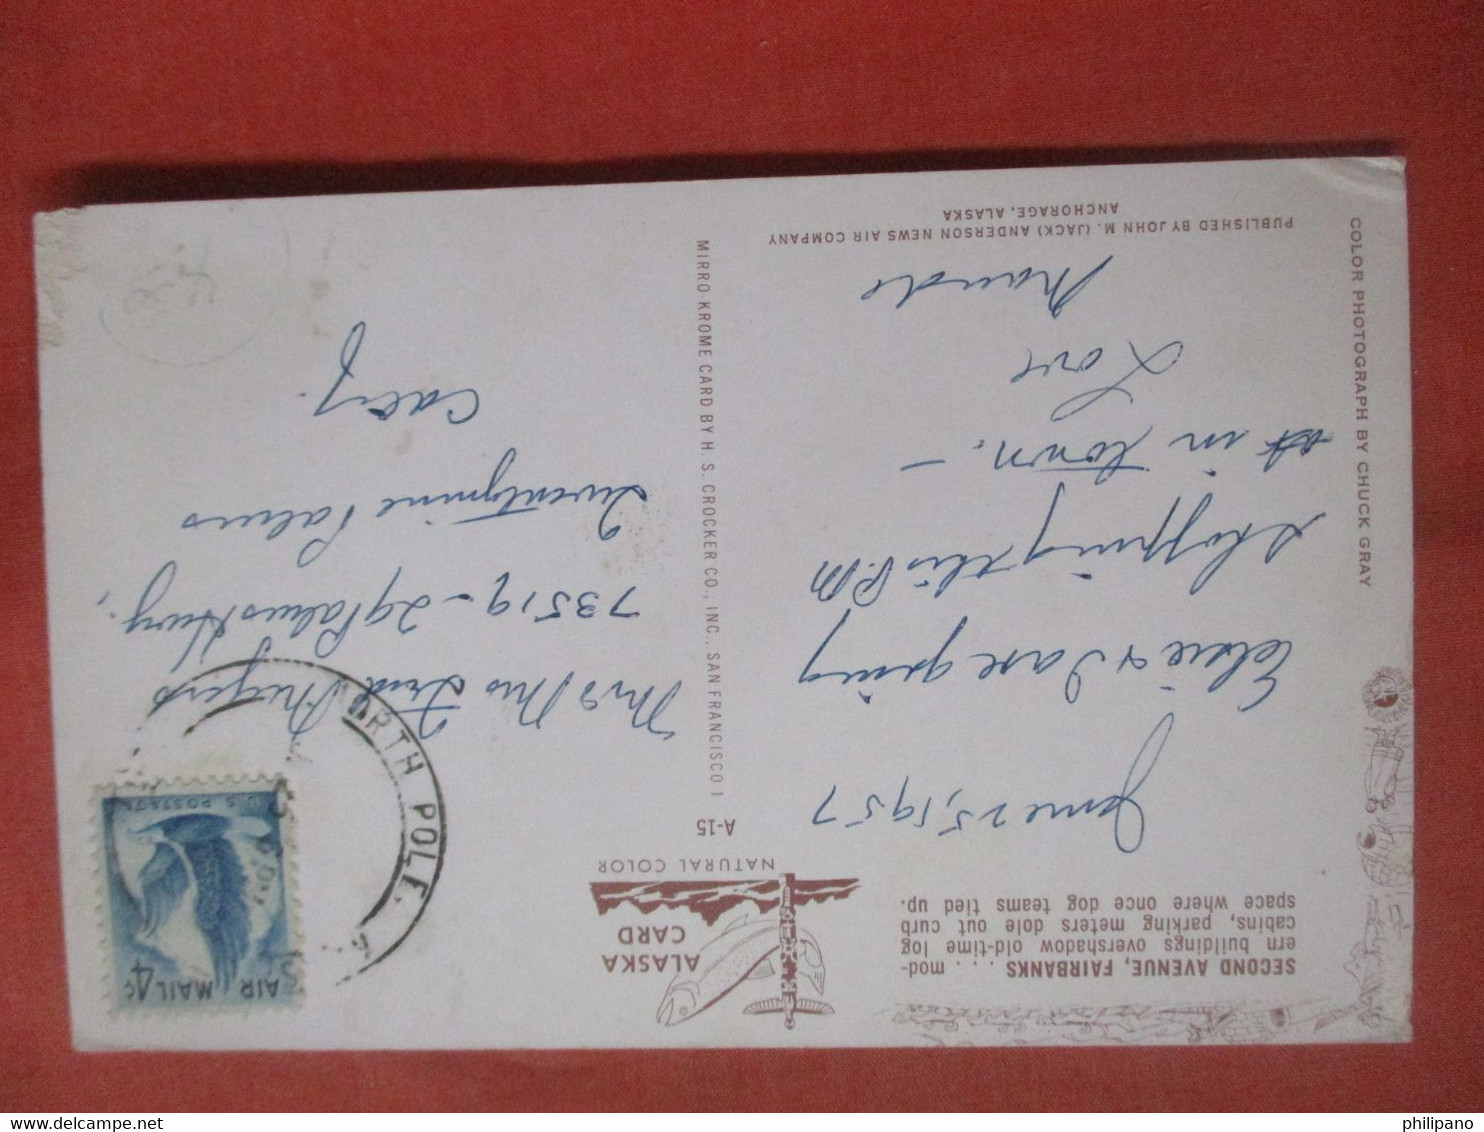 SECOND AVENUE, FAIRBANKS . . . . mod-
ern buildings overshadow old-time log
cabins, parking meters dole out curb
space where once dog teams tied up.
June 25, 1957
Elsie & Dave going
shopping this P.M
in town. –
Love
Maude
PUBLISHED BY JOHN M. (JACK) ANDERSON NEWS AIR COMPANY
ANCHORAGE, ALASKA
COLOR PHOTOGRAPH BY CHUCK GRAY
ALASKA
CARD
NATURAL COLOR
A-15
MIRRO-KROME CARD BY H. S. CROCKER CO., INC., SAN FRANCISCO 1
AIR MAIL 4¢
U.S. POSTAGE
NORTH POLE,
Mr & Mrs Fred Meyers
73519 - 29 Palms Hwy.,
Twentynine Palms
Calif.
philipano